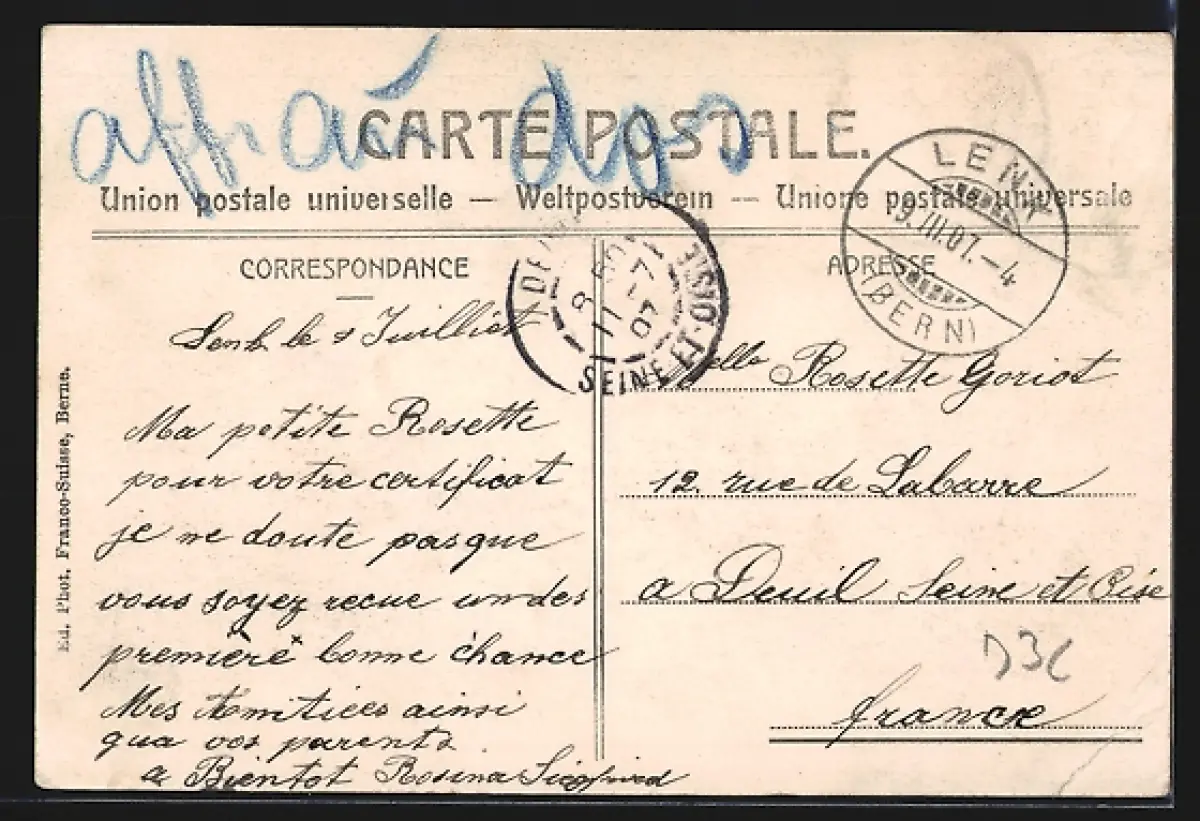 affrai dos
CARTE POSTALE.
Union postale universelle — Weltpostverein — Unione postale universale
LENK
9.VII.07.–4
(BERN)
DEUIL
8
11 -7
07
SEINE-ET-OISE
CORRESPONDANCE
Lenk le 8 Juilliet
Ma petite Rosette
pour votre certificat
je ne doute pas que
vous soyez recue un des
premièrè bonne chance
Mes Amitiees ainsi
qua vos parents
a Bientot Rosina Siegfried
ADRESSE
Melle Rosette Goriot
12. rue de Labarre
a Deuil Seine et Oise
france
D3C
Ed. Phot. Franco-Suisse, Berne.